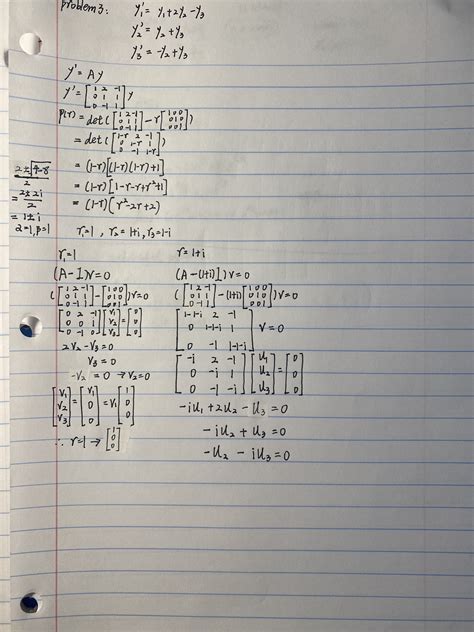 problem 3: y₁' = y₁+2y₂ -y₃
y₂' = y₂ + y₃
y₃' = -y₂ + y₃
y' = Ay
y' = [1 2 -1; 0 1 1; 0 -1 1] y
p(r) = det([1 2 -1; 0 1 1; 0 -1 1] - r[1 0 0; 0 1 0; 0 0 1])
= det([1-r 2 -1; 0 1-r 1; 0 -1 1-r])
= (1-r)[(1-r)(1-r)+1]
= (1-r)[1-r-r+r²+1]
= (1-r)(r²-2r+2)
r₁=1, r₂=1+i, r₃=1-i
2±√4-8 / 2
= 2±2i / 2
= 1±i
α=1, β=1
r=1
(A-I)v=0
([1 2 -1; 0 1 1; 0 -1 1] - [1 0 0; 0 1 0; 0 0 1])v=0
[0 2 -1; 0 0 1; 0 -1 0][v₁; v₂; v₃] = [0; 0; 0]
2v₂ - v₃ = 0
v₃ = 0
-v₂ = 0 → v₂=0
[v₁; v₂; v₃] = [v₁; 0; 0] = v₁[1; 0; 0]
∴ r=1 → [1; 0; 0]
r=1+i
(A-(1+i)I)v=0
([1 2 -1; 0 1 1; 0 -1 1] - (1+i)[1 0 0; 0 1 0; 0 0 1])v=0
[1-1-i 2 -1; 0 1-1-i 1; 0 -1 1-1-i] v=0
[-i 2 -1; 0 -i 1; 0 -1 -i][u₁; u₂; u₃] = [0; 0; 0]
-iu₁ + 2u₂ - u₃ = 0
-iu₂ + u₃ = 0
-u₂ - iu₃ = 0